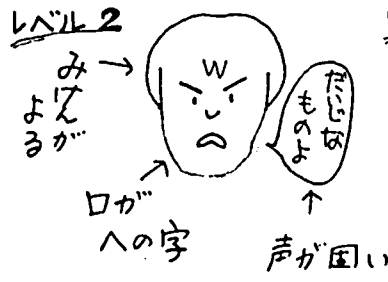 レベル2
みけんが
よる
W
だいじな
ものよ
口が
への字
声が固い